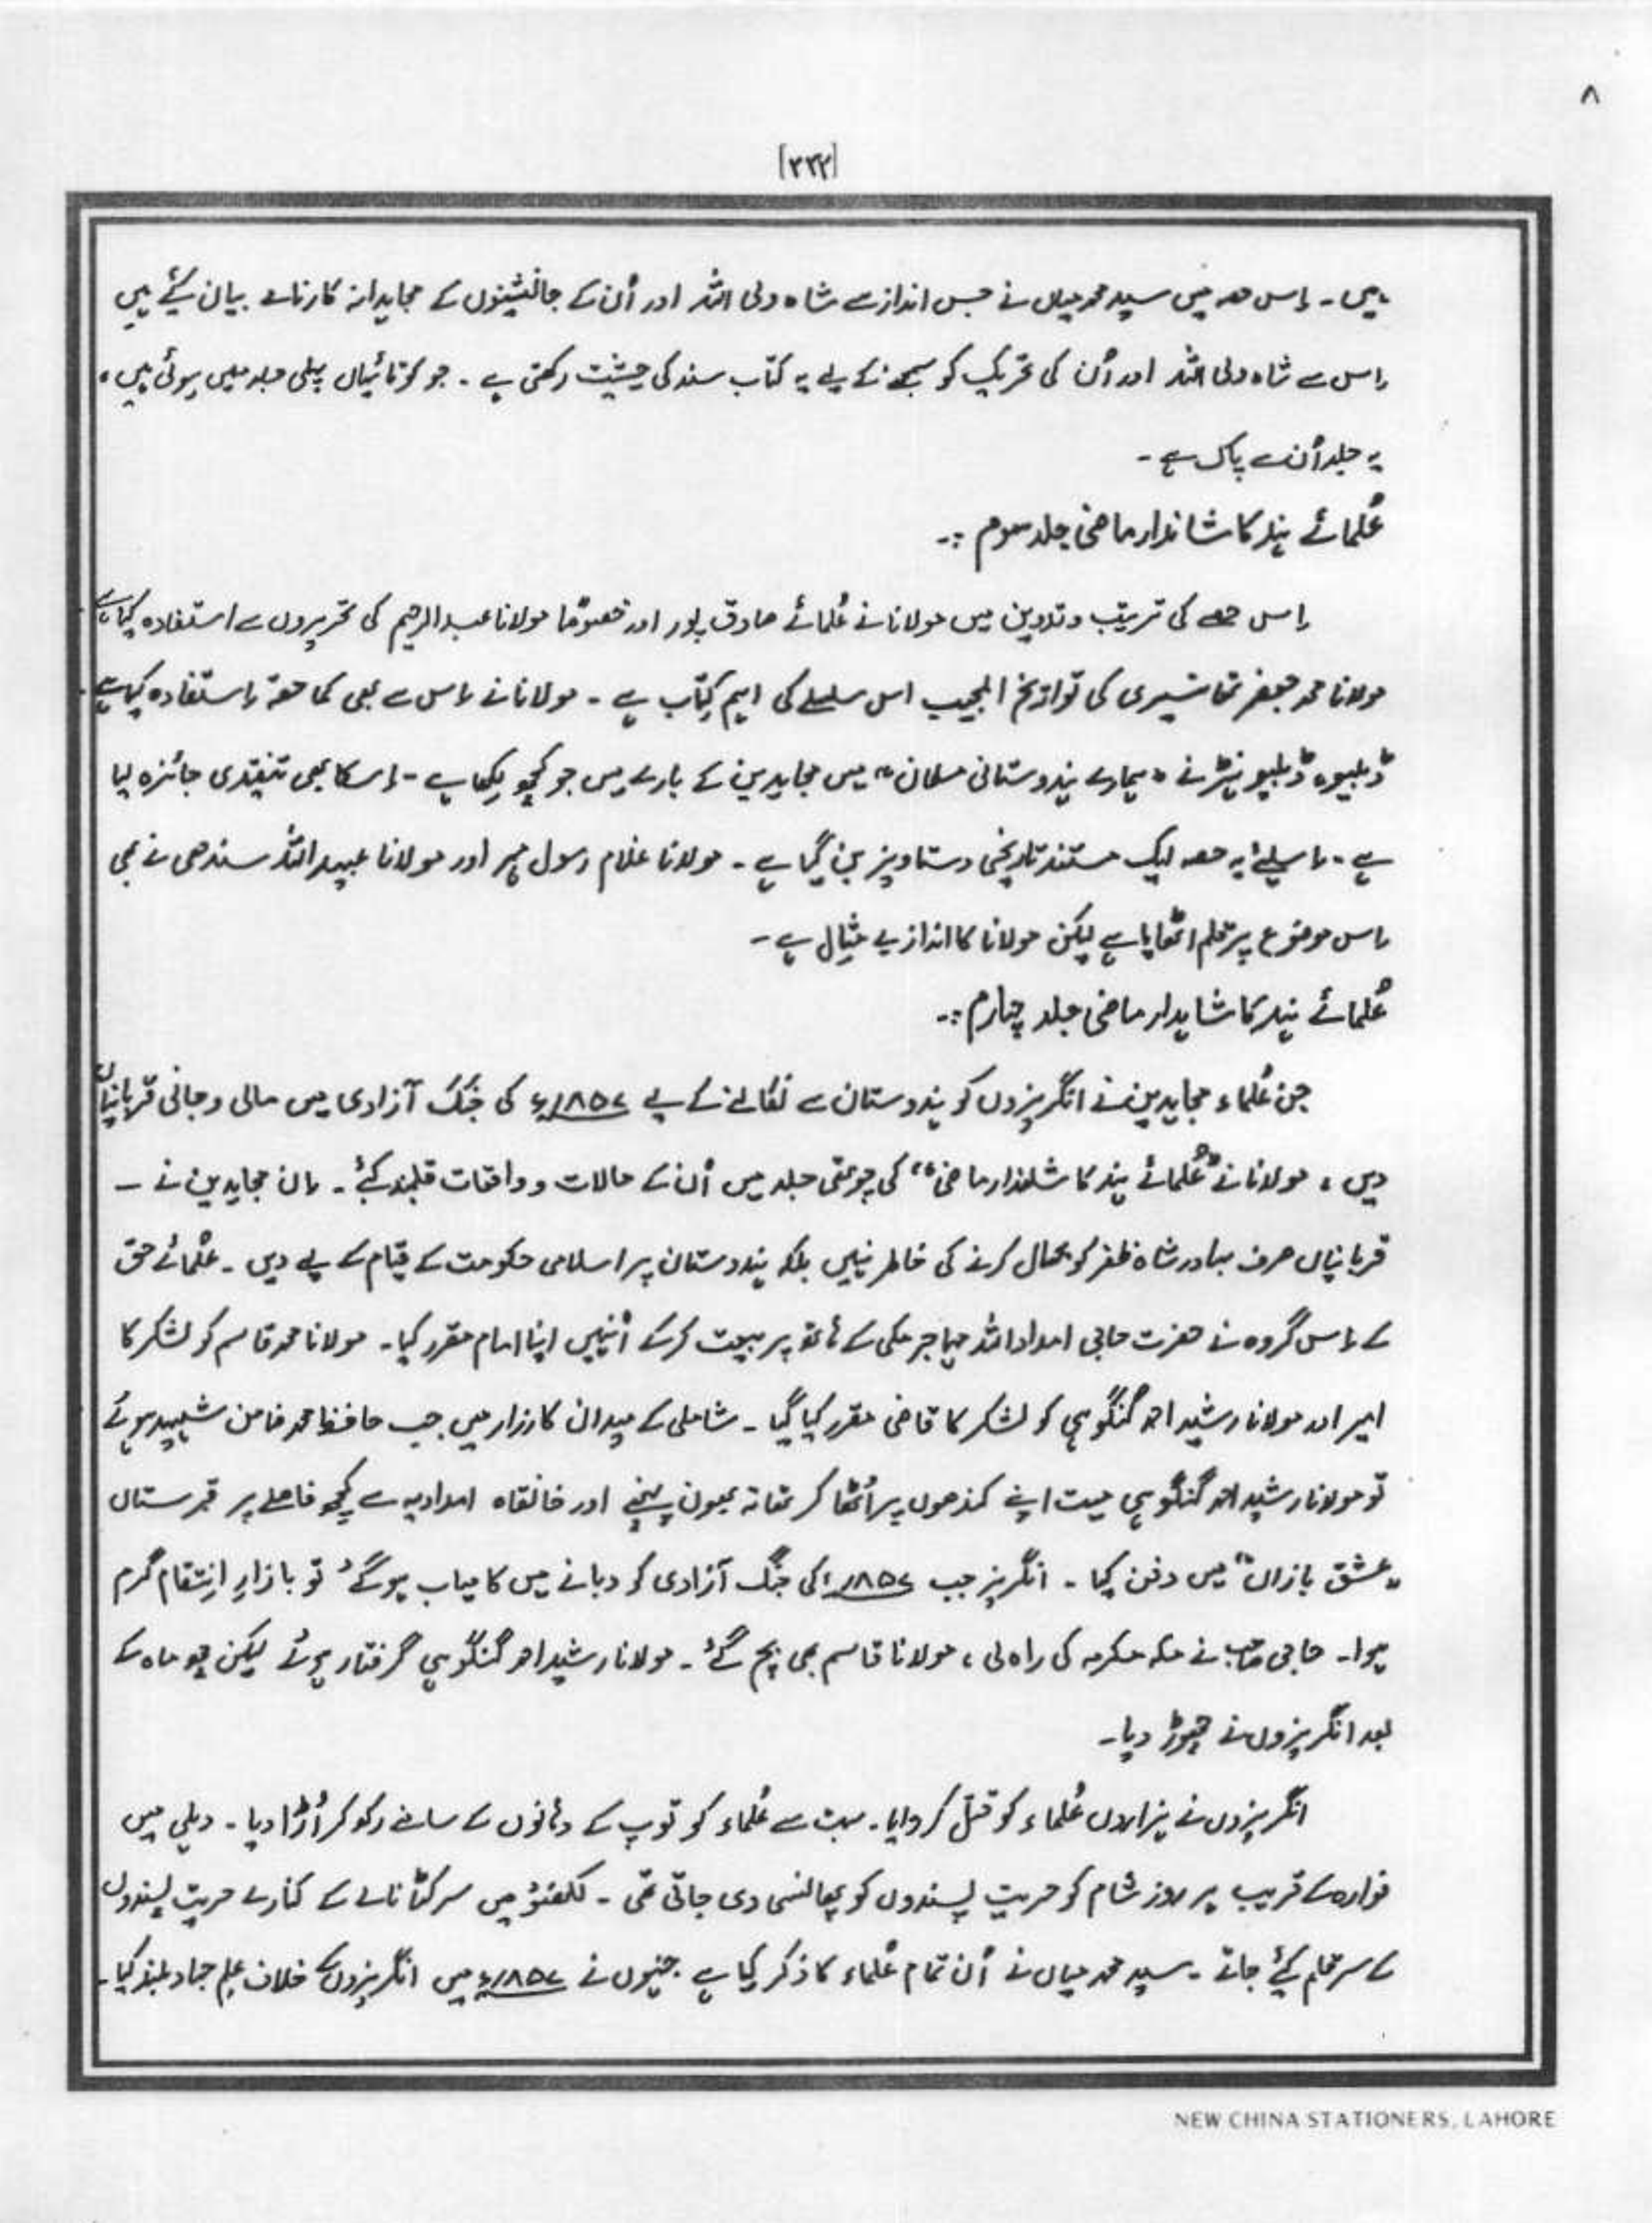 ۸
[۳۳۲]
ہیں۔ اِس حصہ میں سید محمد میاں نے جس انداز سے شاہ ولی اللہ اور اُن کے جانشینوں کے مجاہدانہ کارنامے بیان کیئے ہیں
اِس سے شاہ ولی اللہ اور اُن کی تحریک کو سمجھنے کے لیے یہ کتاب سند کی حیثیت رکھتی ہے۔ جو کوتائیاں پہلی جلد میں ہوئی ہیں،
یہ جلد اُن سے پاک ہے۔
عُلمائے ہند کا شاندار ماضی جلد سوم :۔
اِس حصے کی ترتیب و تدوین میں مولانا نے عُلمائے صادق پور اور خصوصًا مولانا عبدالرحیم کی تحریروں سے استفادہ کیا ہے
مولانا محمد جعفر تھانیسری کی تواریخ العجیب اس سلسلے کی اہم کِتاب ہے۔ مولانا نے اِس سے بھی کما حقہٗ اِستفادہ کیا ہے
ڈبلیو، ڈبلیو ہنٹر نے "ہمارے ہندوستانی مسلمان" میں مجاہدین کے بارے میں جو کچھ لِکھا ہے۔ اِسکا بھی تنقیدی جائزہ لیا
ہے۔ اِسلئے یہ حصہ ایک مستند تاریخی دستاویز بن گیا ہے۔ مولانا غلام رسول مہر اور مولانا عبیداللہ سندھی نے بھی
اِس موضوع پر قلم اٹھایا ہے لیکن مولانا کا انداز بے مِثال ہے۔
عُلمائے ہند کا شاندار ماضی جلد چہارم :۔
جن عُلماء مجاہدین نے انگریزوں کو ہندوستان سے نکالنے کے لیے ۱۸۵۷ء کی جنگ آزادی میں مالی و جانی قربانیاں
دیں، مولانا نے "عُلمائے ہند کا شاندار ماضی" کی چوتھی جلد میں اُن کے حالات و واقعات قلمبند کئے۔ اِن مجاہدین نے ۔
قربانیاں صرف بہادر شاہ ظفر کو بحال کرنے کی خاطر نہیں بلکہ ہندوستان پر اسلامی حکومت کے قیام کے لیے دیں۔ عُلمائے حق
کے اِس گروہ نے حضرت حاجی امداداللہ مہاجر مکی کے ہاتھ پر بیعت کرکے اُنہیں اپنا امام مقرر کیا۔ مولانا محمد قاسم کو لشکر کا
امیر اور مولانا رشید احمد گنگوہی کو لشکر کا قاضی مقرر کیا گیا۔ شاملی کے میدان کارزار میں جب حافظ محمد ضامن شہید ہوئے
تو مولانا رشید احمد گنگوہی میت اپنے کندھوں پر اُٹھا کر تھانہ بھون پہنچے اور خانقاہ امدادیہ سے کچھ فاصلے پر قبرستان
"عشق بازاں" میں دفن کیا۔ انگریز جب ۱۸۵۷ء کی جنگ آزادی کو دبانے میں کامیاب ہوگئے تو بازارِ اِنتقام گرم
ہوا۔ حاجی صاحب نے مکہ مکرمہ کی راہ لی، مولانا قاسم بھی بچ گئے۔ مولانا رشید احمد گنگوہی گرفتار ہوئے لیکن چھ ماہ کے
بعد انگریزوں نے چھوڑ دیا۔
انگریزوں نے ہزاروں عُلماء کو قتل کروایا۔ بہت سے عُلماء کو توپ کے دہانوں کے سامنے رکھ کر اُڑا دیا۔ دہلی میں
فوارہ کے قریب ہر روز شام کو حریت پسندوں کو پھانسی دی جاتی تھی۔ لکھنؤ میں سرکٹا نالے کے کنارے حریت پسندوں
کے سر قلم کیئے جاتے۔ سید محمد میاں نے اُن تمام عُلماء کا ذکر کیا ہے جنہوں نے ۱۸۵۷ء میں انگریزوں کے خلاف علمِ جہاد بلند کیا۔
NEW CHINA STATIONERS, LAHORE